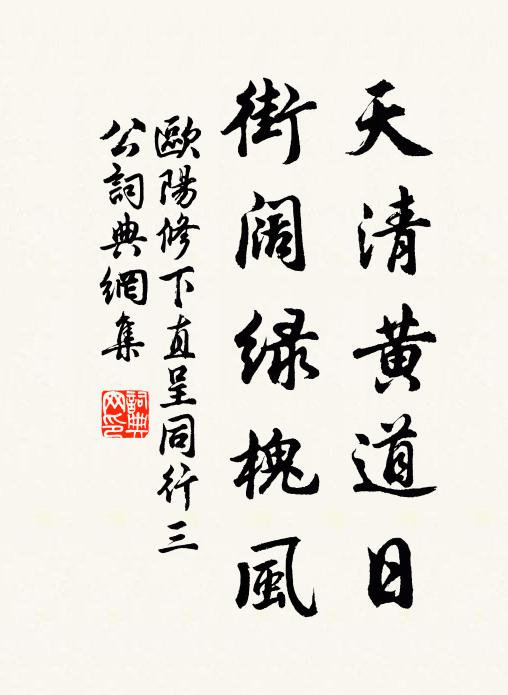 天清黄道日
街阔绿槐風
歐陽修下直呈同行三
公詞典網集
詞典
网印